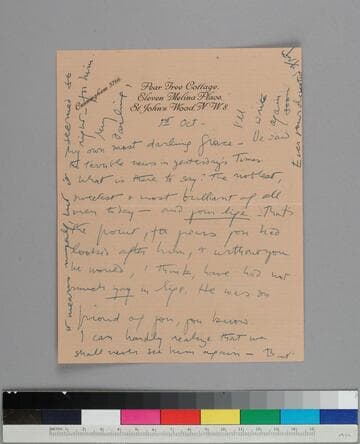 Pear Tree Cottage.
Eleven Melina Place,
St. John's Wood, N.W.8
Cunningham
1st Oct -
My
darling,
My own most darling Grace -
A terrible news in yesterday's Times
What is there to say? The noblest,
sweetest & most brilliant of all
men today - and your life - that's
the point, for years you had
looked after him, & without you
he would, I think, have had not
much joy in life. He was so
proud of you, you know.
I can hardly realize that we
shall never see him again - But
I'll
write
again
soon
& means myself but it seemed to
be right - for him
Ever your devoted